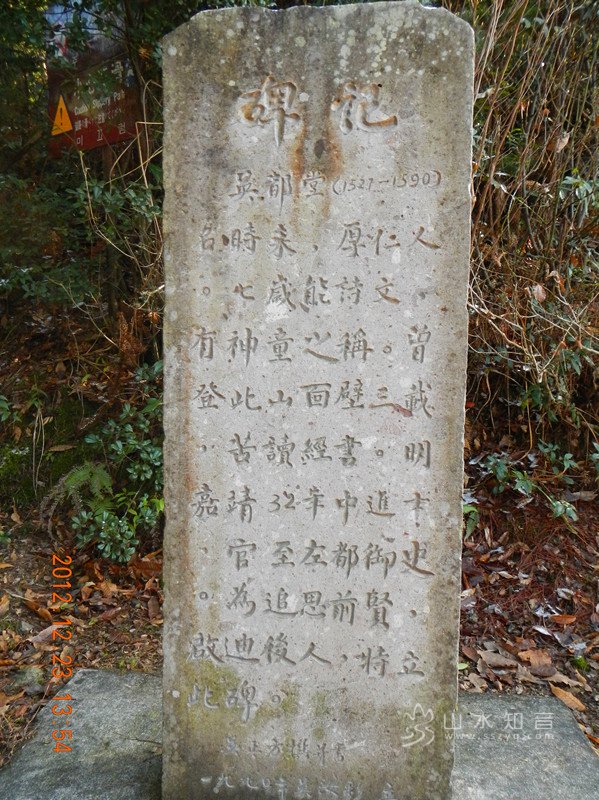 碑记
吳都堂(1527-1590)
名時来,厚仁人
。七歲能詩文,
有神童之稱。曾
登此山面壁三載
,苦讀經書。明
嘉靖32年中進士
,官至左都御史
。為追思前賢,
啟迪後人,特立
此碑。
2012.12.23 13:54
山水知音